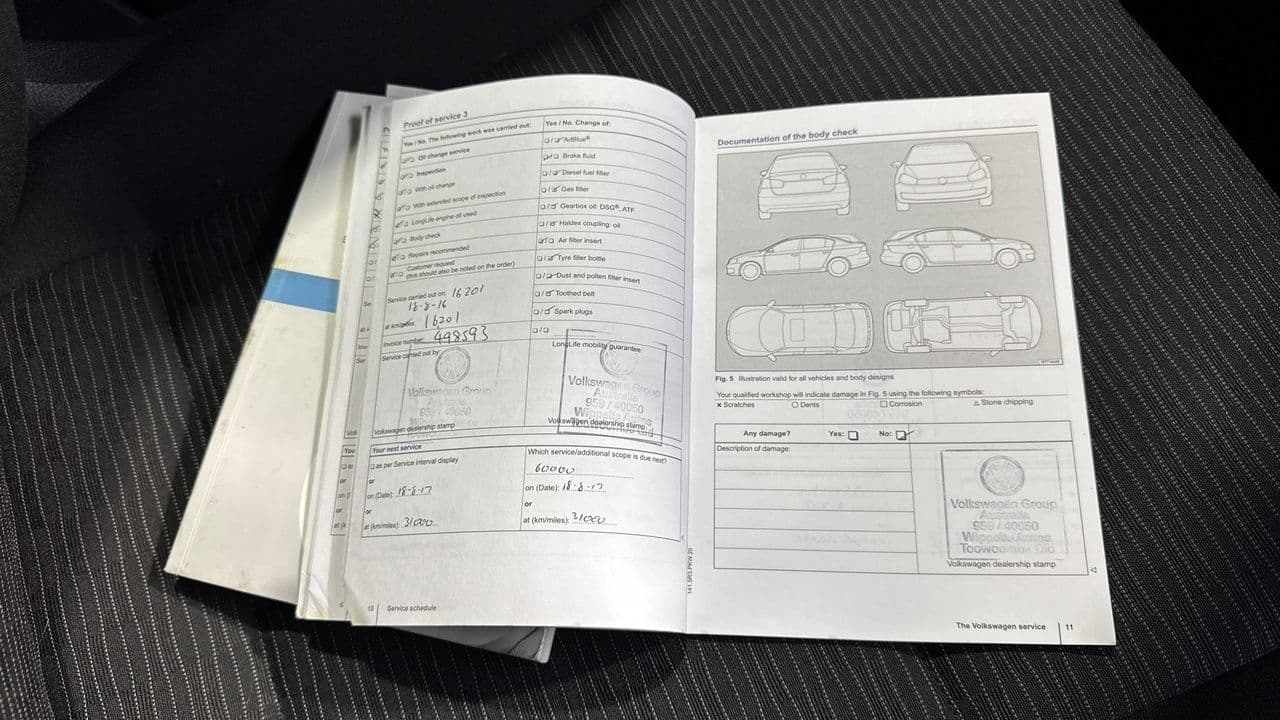 Proof of service 3
Yes / No. The following work was carried out:
Oil change service
Inspection
With oil change
With extended scope of Inspection
LongLife engine oil used
Body check
Repairs recommended
Customer request
(this should also be noted on the order)
Service carried out on: 16201
18-8-16
at km/miles: 16201
Invoice number: 498593
Service carried out by:
Volkswagen Group
Volkswagen dealership stamp
Yes / No. Change of:
AdBlue®
Brake fluid
Diesel fuel filter
Gas filter
Gearbox oil: DSG®, ATF
Haldex coupling: oil
Air filter insert
Tyre filler bottle
Dust and pollen filter insert
Toothed belt
Spark plugs
LongLife mobility guarantee:
Volkswagen Group
Australia
959 / 40050
Volkswagen dealership stamp
Your next service
as per Service interval display
or
on (Date): 18-8-17
or
at (km/miles): 31000
Which service/additional scope is due next?
60000
on (Date): 18-8-17
or
at (km/miles): 31000
10 Service schedule
141.5R3.PKW.20
Documentation of the body check
Fig. 5 Illustration valid for all vehicles and body designs
Your qualified workshop will indicate damage in Fig. 5 using the following symbols:
× Scratches ○ Dents □ Corrosion △ Stone chipping
Any damage? Yes: No:
Description of damage:
Volkswagen Group
Australia
959 / 40050
Volkswagen dealership stamp
The Volkswagen service 11